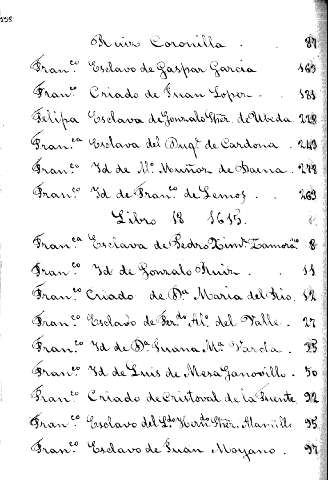 Ruiz Coronilla . . 87
Fran.co Esclavo de Gaspar Garcia 163
Fran.co Criado de Juan Lopez . . 181
Felipa Esclava de Gonzalo Fhez. de Ubeda 228
Fran.ca Esclava del Duq.e de Cardona . 243
Fran.co Id de M.l Muñoz de Baena . 248
Fran.co Id de Fran.co de Lemos . . 269
Libro 18 1615.
Fran.ca Esclava de Pedro Zamora 8
Fran.co Id de Gonzalo Ruiz . . 11
Fran.co Criado de D.a Maria del Rio. 12
Fran.co Esclavo de Fer.do Al.o del Valle . 27
Fran.co Id de D.a Juana M.a Varela . 35
Fran.co Id de Luis de Mesa . 50
Fran.co Criado de Cristoval de la Fuente 92
Fran.co Esclavo del L.do 95
Fran.co Esclavo de Juan Moyano . 97